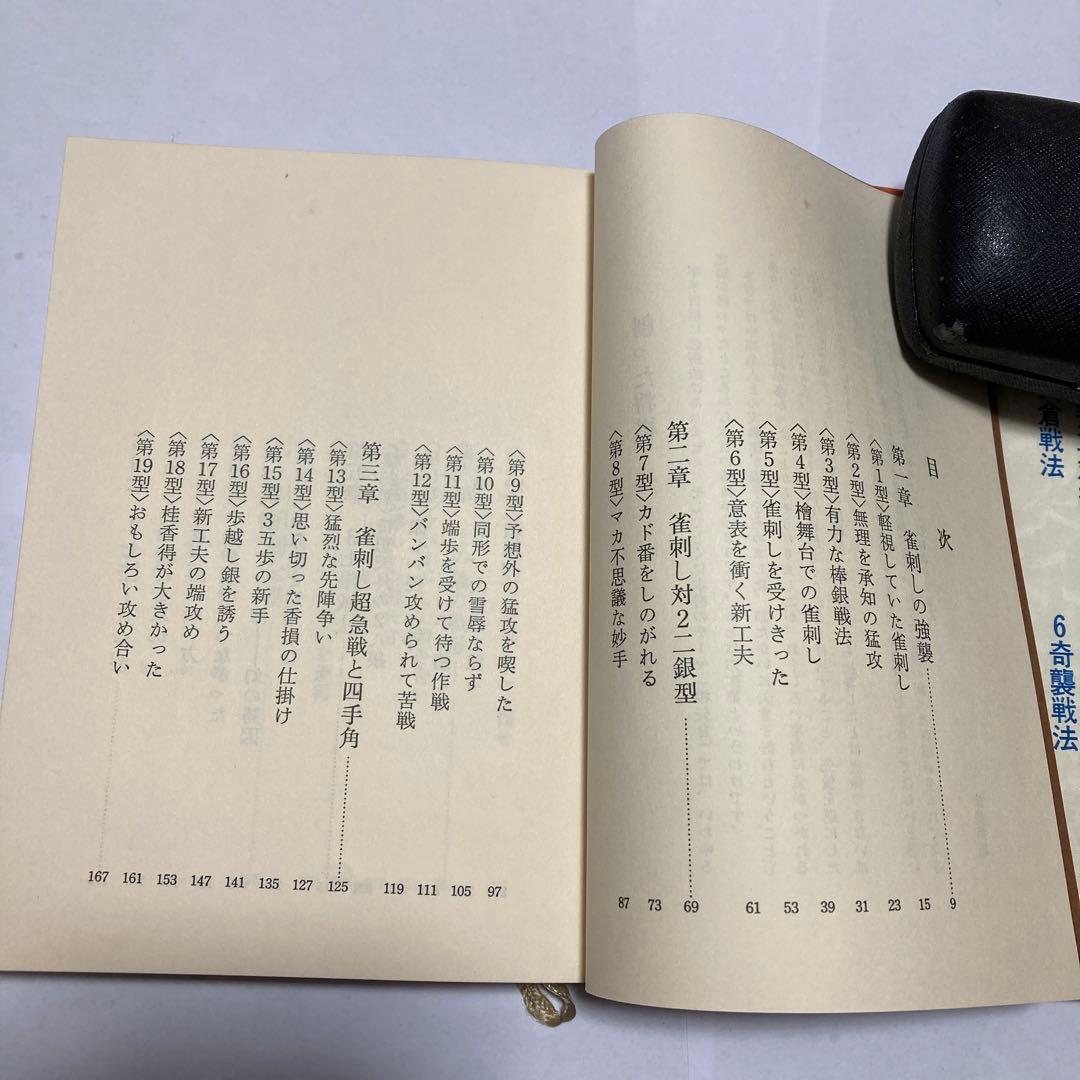 目次
第一章　雀刺しの強襲……9
〈第1型〉軽視していた雀刺し 15
〈第2型〉無理を承知の猛攻 23
〈第3型〉有力な棒銀戦法 31
〈第4型〉檜舞台での雀刺し 39
〈第5型〉雀刺しを受けきった 53
〈第6型〉意表を衝く新工夫 61
第二章　雀刺し対2二銀型……69
〈第7型〉カド番をしのがれる 73
〈第8型〉マカ不思議な妙手 87
〈第9型〉予想外の猛攻を喫した 97
〈第10型〉同形での雪辱ならず 105
〈第11型〉端歩を受けて待つ作戦 111
〈第12型〉バンバン攻められて苦戦 119
第三章　雀刺し超急戦と四手角……125
〈第13型〉猛烈な先陣争い 127
〈第14型〉思い切った香損の仕掛け 135
〈第15型〉3五歩の新手 141
〈第16型〉歩越し銀を誘う 147
〈第17型〉新工夫の端攻め 153
〈第18型〉桂香得が大きかった 161
〈第19型〉おもしろい攻め合い 167
倉戦法
6奇襲戦法